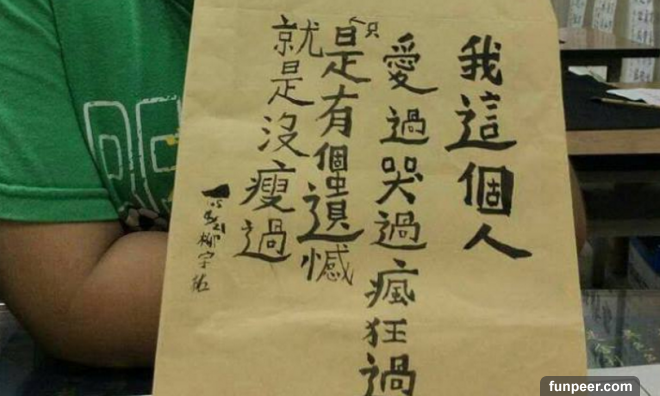 我這個人
愛過哭過瘋狂過
只是有個遺憾
就是沒瘦過
柳宇佑
funpeer.com